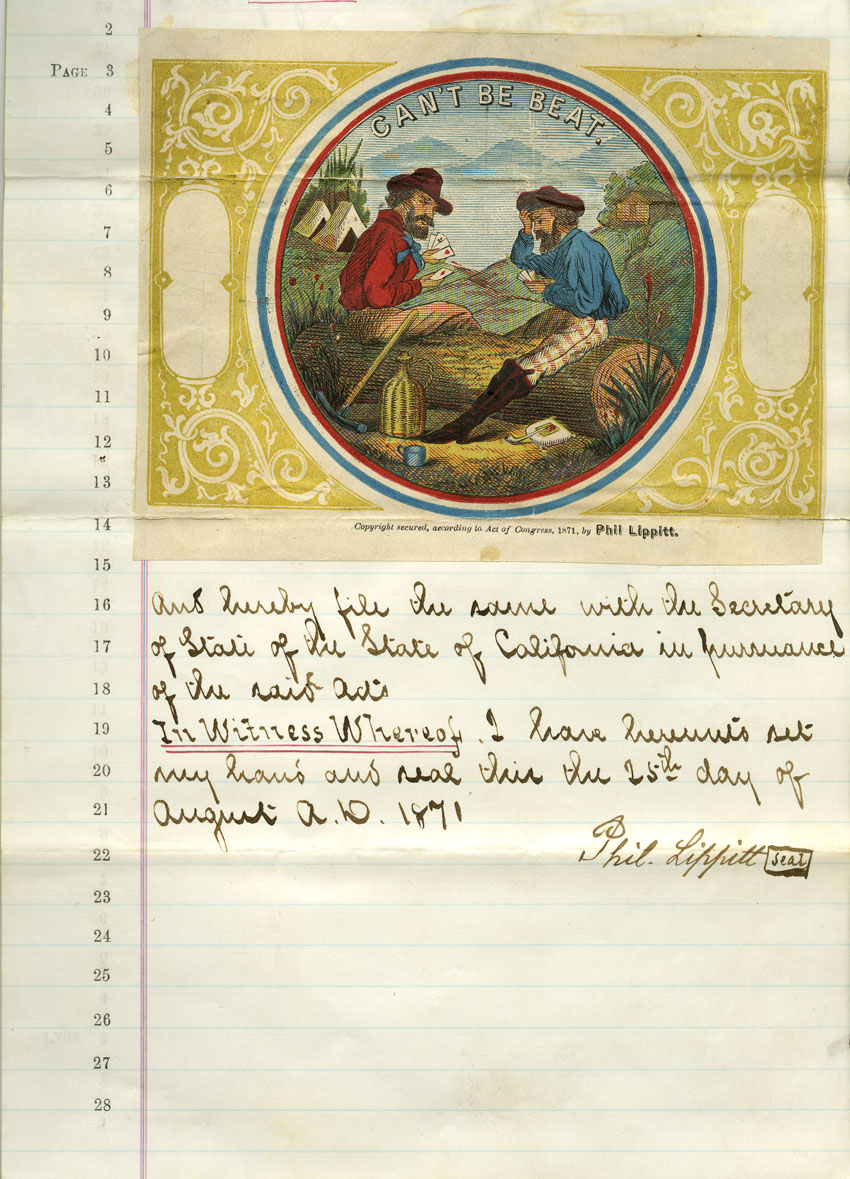 2
PAGE 3
4
CAN'T BE BEAT.
5
6
7
8
9
10
11
12
13
14
Copyright secured, according to Act of Congress, 1871, by Phil Lippitt.
15
16 And hereby file the same with the Secretary
17 of State of the State of California in pursuance
18 of the said Acts
19 In Witness Whereof, I have hereunto set
20 my hand and seal this the 25th day of
21 August A.D. 1871
22 Phil. Lippitt seal
23
24
25
26
27
28